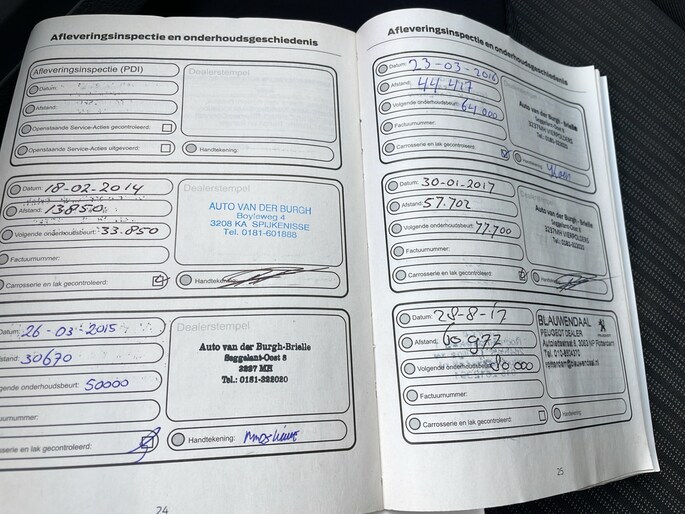 Afleveringsinspectie en onderhoudsgeschiedenis
Afleveringsinspectie (PDI)
Datum:
Afstand:
Openstaande Service-Acties gecontroleerd:
Openstaande Service-Acties uitgevoerd:
Dealerstempel
Handtekening:
Datum: 18-02-2014
Afstand: 13850
Volgende onderhoudsbeurt: 33.850
Factuurnummer:
Carrosserie en lak gecontroleerd:
Dealerstempel
AUTO VAN DER BURGH
Boyleweg 4
3208 KA SPIJKENISSE
Tel. 0181-601888
Datum: 26-03-2015
stand: 30670
gende onderhoudsbeurt: 50000
uurnummer:
sserie en lak gecontroleerd:
Dealerstempel
Auto van der Burgh-Brielle
Seggelant-Oost 8
3237 MH
Tel.: 0181-322020
Handtekening:
24
Afleveringsinspectie en onderhoudsgeschiedenis
Datum: 23-03-2016
Afstand: 44.417
Volgende onderhoudsbeurt: 64.000
Factuurnummer:
Carrosserie en lak gecontroleerd:
Dealerstempel
Auto van der Burgh-Brielle
Seggelant-Oost 8
3237MH VIERPOLDERS
Handtekening:
Datum: 30-01-2017
Afstand: 57.702
Volgende onderhoudsbeurt: 77.700
Factuurnummer:
Carrosserie en lak gecontroleerd:
Dealerstempel
Auto van der Burgh - Brielle
Seggelant-Oost 8
3237MH VIERPOLDERS
Datum: 28-8-17
Afstand: 60.977
Volgende onderhoudsbeurt: 80.000
Factuurnummer:
Carrosserie en lak gecontroleerd:
BLAUWENDAAL
PEUGEOT DEALER
Rotterdam
Handtekening:
25